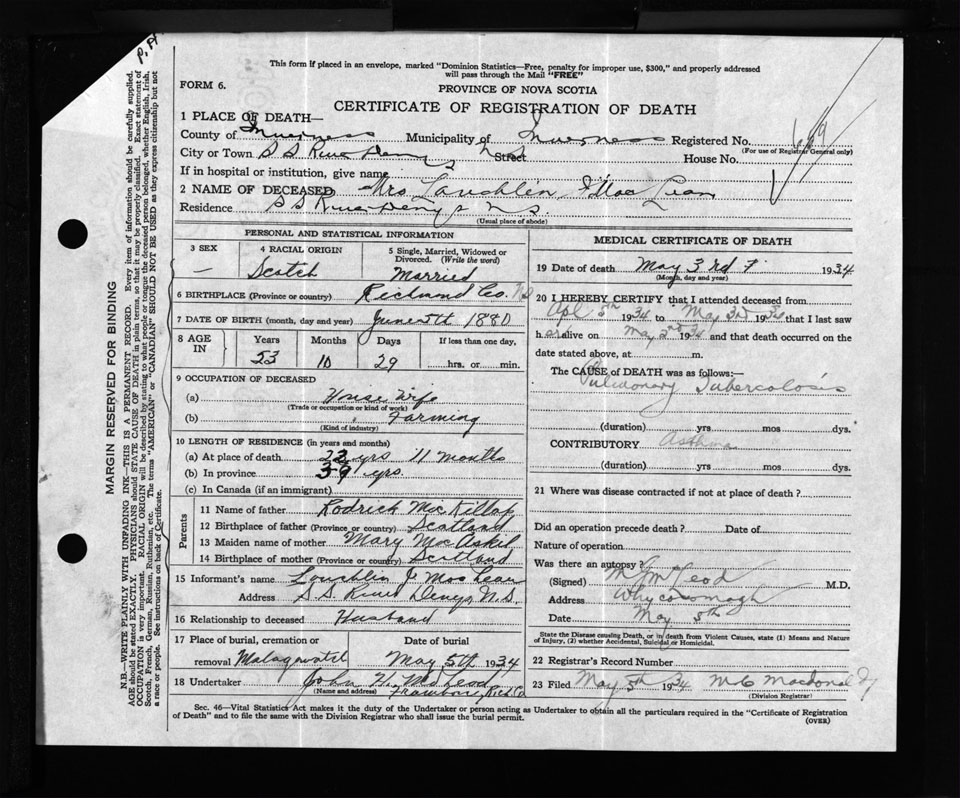 P. A.
This form if placed in an envelope, marked "Dominion Statistics—Free, penalty for improper use, $300," and properly addressed
will pass through the Mail "FREE"
FORM 6.
PROVINCE OF NOVA SCOTIA
CERTIFICATE OF REGISTRATION OF DEATH
1 PLACE OF DEATH—
County of Inverness Municipality of Inverness Registered No.
(For use of Registrar General only)
City or Town S S River Denys Street House No.
If in hospital or institution, give name
2 NAME OF DECEASED Mrs Lauchlin J MacLean
Residence S S River Denys N.S.
(Usual place of abode)
PERSONAL AND STATISTICAL INFORMATION
3 SEX —
4 RACIAL ORIGIN Scotch
5 Single, Married, Widowed or Divorced. (Write the word) Married
6 BIRTHPLACE (Province or country) Richmond Co. N.S
7 DATE OF BIRTH (month, day and year) June 5th 1880
8 AGE IN Years 53 Months 10 Days 29 If less than one day, hrs. or min.
9 OCCUPATION OF DECEASED
(a) House Wife
(Trade or occupation or kind of work)
(b) Farming
(Kind of industry)
10 LENGTH OF RESIDENCE (in years and months)
(a) At place of death 22 yrs 11 months
(b) In province 39 yrs.
(c) In Canada (if an immigrant)
Parents
11 Name of father Rodrick McKillop
12 Birthplace of father (Province or country) Scotland
13 Maiden name of mother Mary McAskil
14 Birthplace of mother (Province or country) Scotland
15 Informant's name Lauchlin J MacLean
Address S S River Denys N.S.
16 Relationship to deceased Husband
17 Place of burial, cremation or removal Malagwatch Date of burial May 5th 1934
18 Undertaker John H. McLeod
(Name and address) Framboise Rich Co
MEDICAL CERTIFICATE OF DEATH
19 Date of death May 3rd 1934
(Month, day and year)
20 I HEREBY CERTIFY that I attended deceased from
Apl 5th 1934 to May 3rd 1934 that I last saw
her alive on May 2nd 1934 and that death occurred on the
date stated above, at m.
The CAUSE of DEATH was as follows:—
Pulmonary Tubercolosis
(duration) yrs mos dys.
CONTRIBUTORY Asthma
(duration) yrs mos dys.
21 Where was disease contracted if not at place of death?
Did an operation precede death? Date of
Nature of operation
Was there an autopsy?
(Signed) McLeod M.D,
Address Whycocomagh
Date May 5th
State the Disease causing Death, or in death from Violent Causes, state (1) Means and Nature
of Injury, (2) whether Accidental, Suicidal or Homicidal.
22 Registrar's Record Number
23 Filed May 5th 1934 M C Macdonald
(Division Registrar)
Sec. 46—Vital Statistics Act makes it the duty of the Undertaker or person acting as Undertaker to obtain all the particulars required in the "Certificate of Registration
of Death" and to file the same with the Division Registrar who shall issue the burial permit.
(OVER)
MARGIN RESERVED FOR BINDING
N.B.—WRITE PLAINLY WITH UNFADING INK—THIS IS A PERMANENT RECORD. Every item of information should be carefully supplied.
AGE should be stated EXACTLY. PHYSICIANS should STATE CAUSE OF DEATH in plain terms, so that it may be properly classified. Exact statement of
OCCUPATION is very important. RACIAL ORIGIN will be described by stating to what people or tongue the deceased person belonged, whether English, Irish,
Scotch, French, German, Russian, Ruthenian, etc. The terms "AMERICAN" or "CANADIAN" SHOULD NOT BE USED as they express citizenship but not
a race or people. See instructions on back of Certificate.